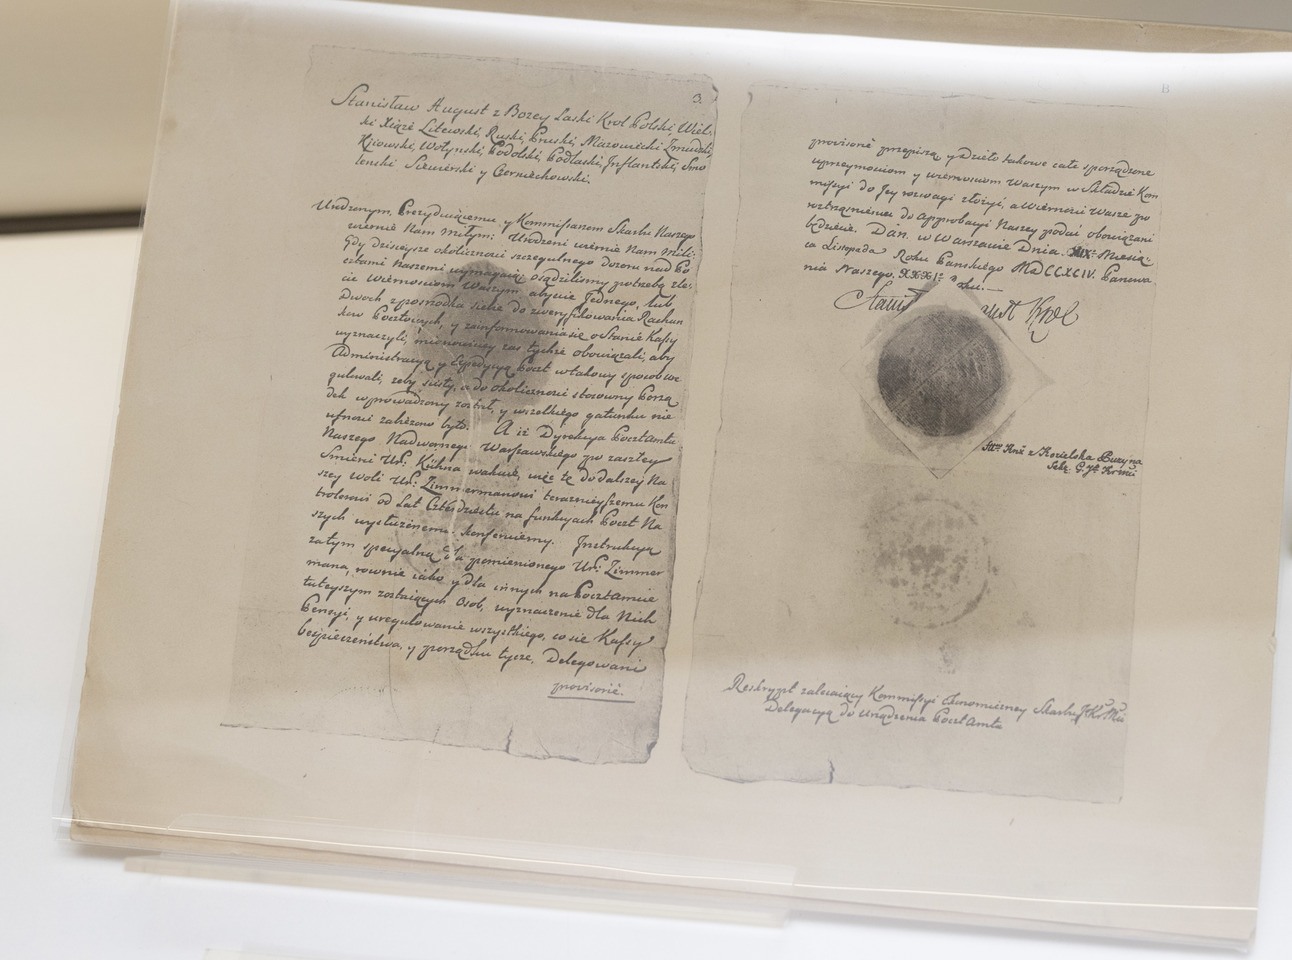 3.
Stanisław August z Bozey Laski Krol Polski, Wiel-
ki Xiąże Litewski, Ruski, Pruski, Mazowiecki Zmudzki,
Kijowski, Wołynski, Podolski, Podlaski, Inflantski, Smo
lenski Siewierski y Czerniechowski.
Urodzonym, Prezyduiącemu, y Kommissarzom Skarbu Naszego
wiernie Nam miłym: Urodzeni wiernie Nam Mili:
Gdy dzisieysze okoliczności szczegulnego dozoru nad Po
cztami Naszemi wymagaią osądzilismy potrzebą zle-
cic Wiernościom Waszym, abyscie Jednego, lub
Dwoch z posrzodka siebie do zweryfikowania Rachun
kow Pocztowych, y zainformowania się o Stanie Kassy
wyznaczyli, mianowicey zas tychże obowiązali, aby
Administracyą y Expedycyą Poczt w takowy sposob ure
gulowali, zeby scisły, a do okoliczności stosowny Porzą
dek wprowadzony został, y wszelkiego gatunku nie
ufności zabieżono było. A iż Dyrekcya Pocztamtu
Naszego Nadwornego Warszawskiego po zaszłey
Smierci Ur: Kühna wakuie, więc tę do dalszey Na
szey Woli Ur: Zimmermanowi teraznieyszemu Kon
trolerowi od Lat Czterdziestu na funkcyach Poczt Na
szych wysłużonemu konferuiemy. Instrukcyą
zatym specyalną dla pomienionego Ur: Zimmer
mana, rownie iako y dla innych na Pocztamcie
tuteyszym zostaiących Osob, wyznaczenie dla Nich
Pensyi, y uregulowanie wszystkiego, co się Kassy
bezpieczeństwa, y porządku tycze, Delegowani
provisoriè.
B
provisoriè przepiszą y Dzieło takowe całe sporządzone
uprzeymościom y wiernościom Waszym w Składzie Kom
missyi do Jey rozwagi złożyć, a Wierności Wasze po
roztrząsnieniu do approbacyi Naszey podać obowiązani
będziecie. Dan. w Warszawie Dnia. XIX: Miesią-
ca Listopada Roku Panskiego MDCCXCIV. Panowa
nia Naszego. XXXI:
Stanis ust Krol
z Kozielska Puzyna
Sekr.
Reskrypt zalecaiący Kommissyi Ekonomiczney Skarbu J.K.Mci
Delegacyą do Urządzenia Pocztamtu